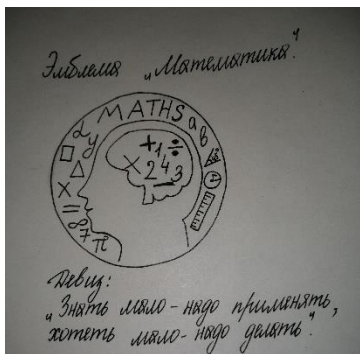 Эмблема „Математика".
MATHS
α
y
a
b
+ 1 ÷
× 2 4 3
−
×
=
∞
7
π
Девиз:
„Знать мало - надо применять,
хотеть мало - надо делать".